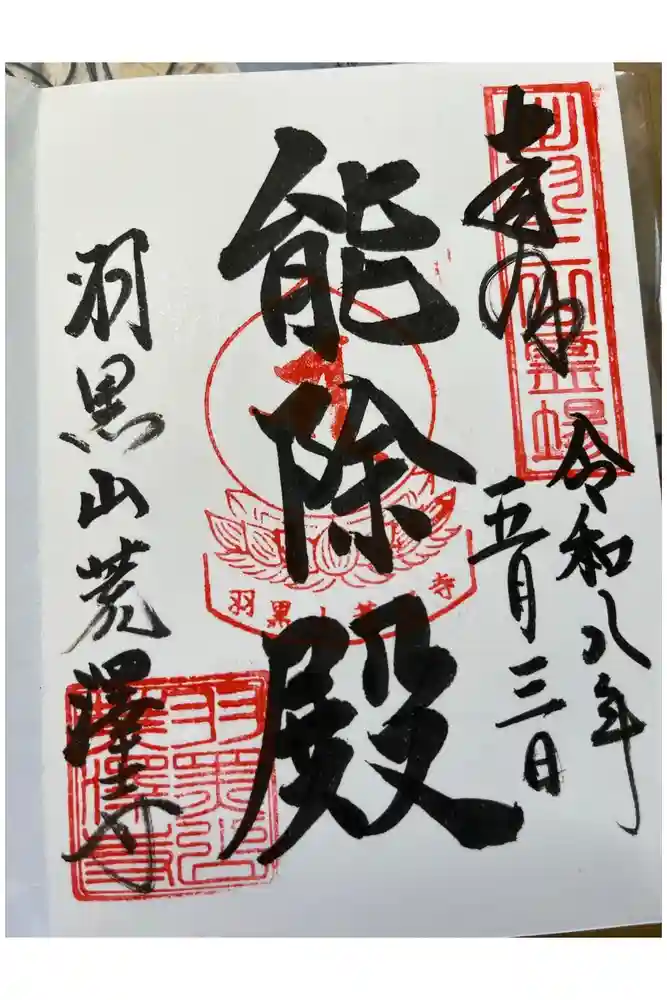 奉拝
令和八年
五月三日
能除殿
羽黒山荒澤寺
出羽三山霊場